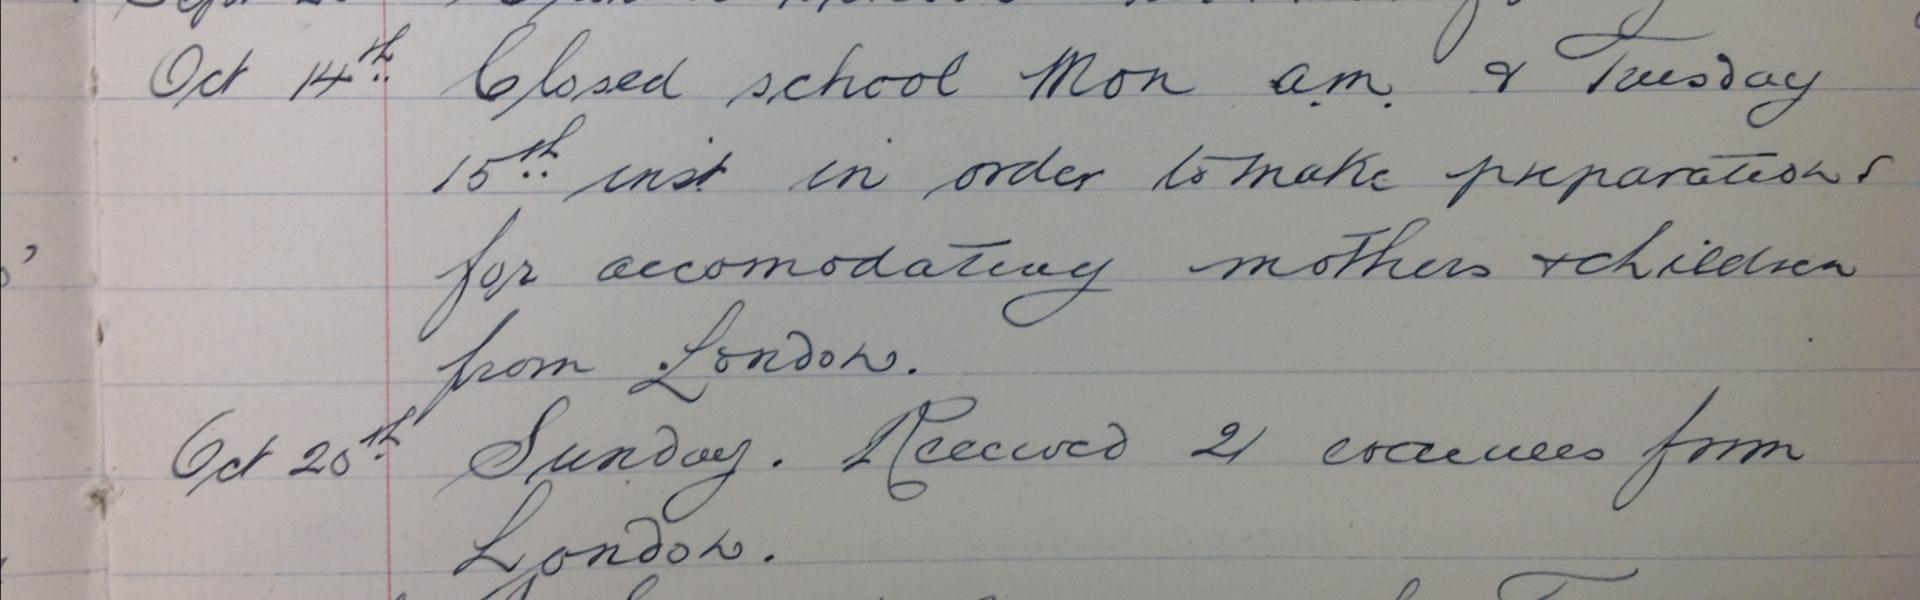 Oct 14th Closed school Mon a.m. & Tuesday
15th inst in order to make preparations
for accomodating mothers & children
from London.
Oct 20th Sunday. Received 21 evacuees from
London.